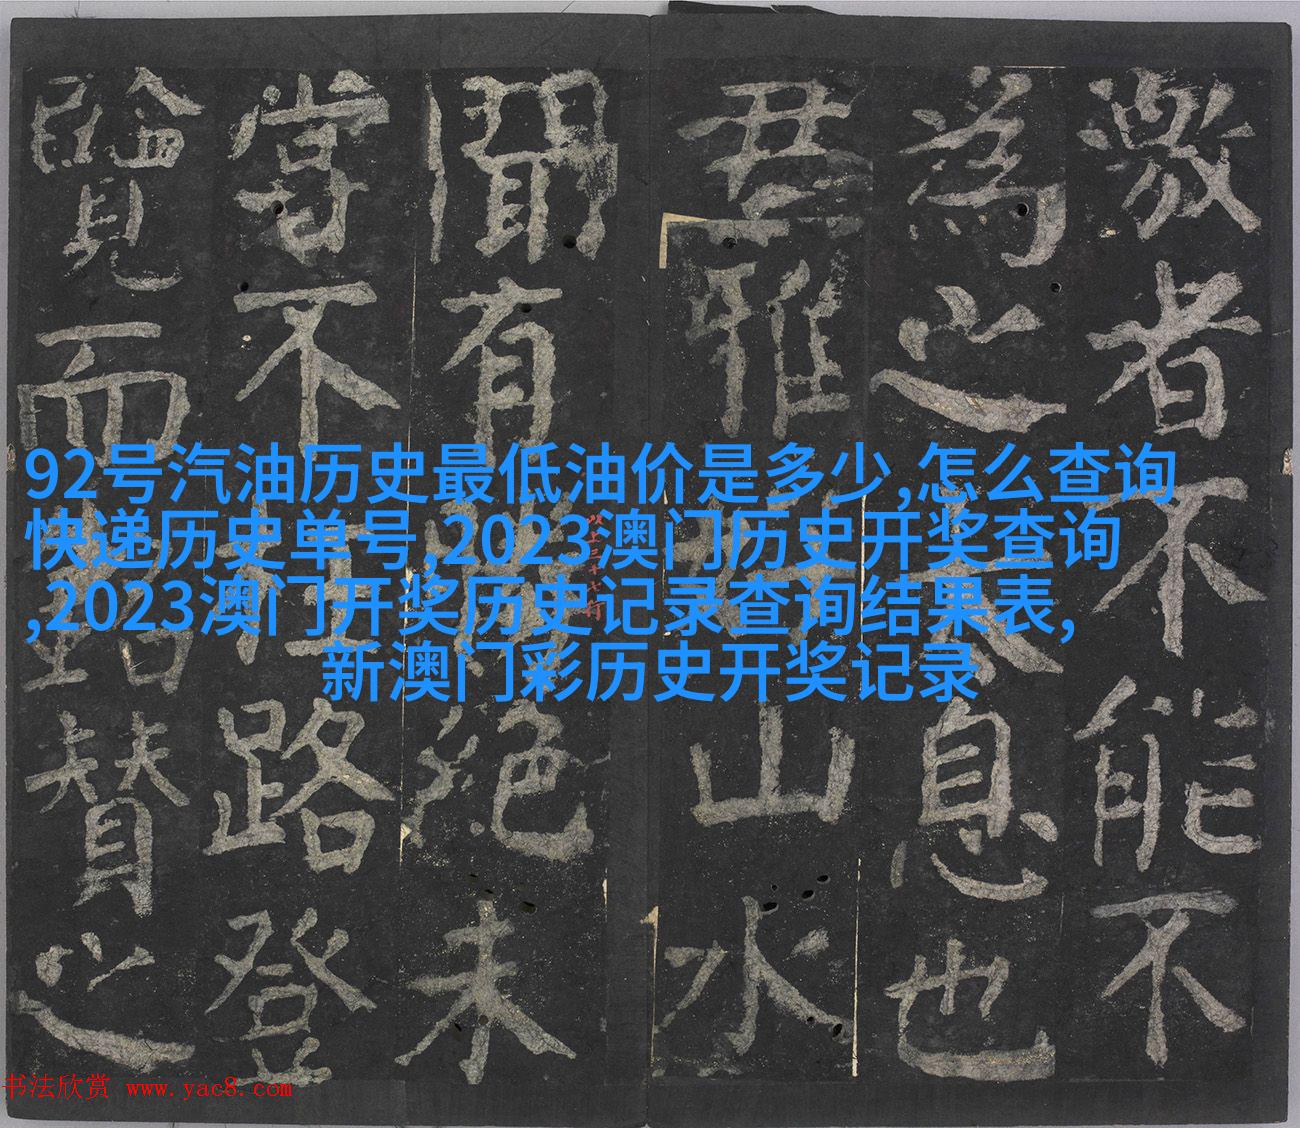 激者不能不
為之太息也
君雅山水
聞有絕未
嘗不路登
覽而賛之
92号汽油历史最低油价是多少,怎么查询
快递历史单号,2023澳门历史开奖查询
,2023澳门开奖历史记录查询结果表,
新澳门彩历史开奖记录
书法欣赏 www.yac8.com